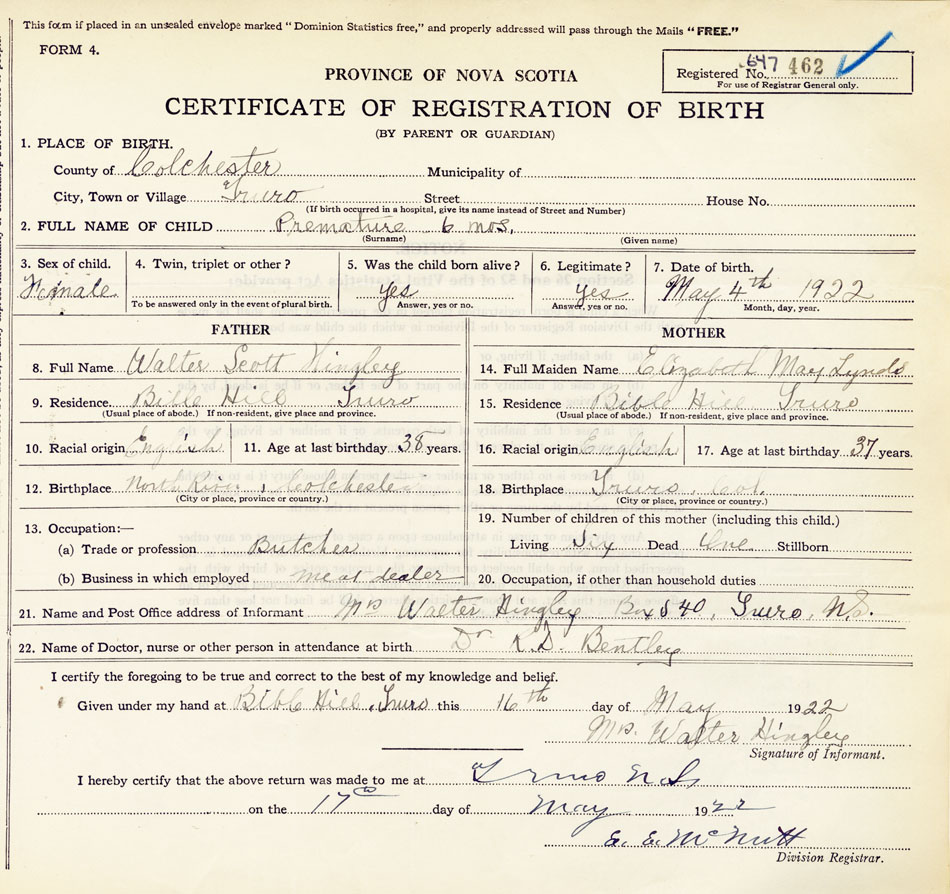 This form if placed in an unsealed envelope marked "Dominion Statistics free," and properly addressed will pass through the Mails "FREE."
FORM 4.
Registered No. 647 462
For use of Registrar General only.
PROVINCE OF NOVA SCOTIA
CERTIFICATE OF REGISTRATION OF BIRTH
(BY PARENT OR GUARDIAN)
1. PLACE OF BIRTH.
County of Colchester Municipality of
City, Town or Village Truro Street House No.
(If birth occurred in a hospital, give its name instead of Street and Number)
2. FULL NAME OF CHILD Premature 6 mos.
(Surname) (Given name)
3. Sex of child. 4. Twin, triplet or other? 5. Was the child born alive? 6. Legitimate? 7. Date of birth.
Female yes yes May 4th 1922
To be answered only in the event of plural birth. Answer, yes or no. Answer, yes or no. Month, day, year.
FATHER
8. Full Name Walter Scott Hingley
9. Residence. Bible Hill Truro
(Usual place of abode.) If non-resident, give place and province.
10. Racial origin English 11. Age at last birthday 38 years.
12. Birthplace North River, Colchester
(City or place, province or country.)
13. Occupation:—
(a) Trade or profession Butcher
(b) Business in which employed meat dealer
MOTHER
14. Full Maiden Name Elizabeth Mary Lynds
15. Residence Bible Hill Truro
(Usual place of abode.) If non-resident, give place and province.
16. Racial origin English 17. Age at last birthday 37 years.
18. Birthplace Truro, Col.
(City or place, province or country.)
19. Number of children of this mother (including this child.)
Living Six Dead One Stillborn
20. Occupation, if other than household duties
21. Name and Post Office address of Informant Mrs Walter Hingley Box 540, Truro, N.S.
22. Name of Doctor, nurse or other person in attendance at birth Dr Bentley
I certify the foregoing to be true and correct to the best of my knowledge and belief.
Given under my hand at Bible Hill, Truro this 16th day of May 1922
Mrs. Walter Hingley
Signature of Informant.
I hereby certify that the above return was made to me at Truro N.S.
on the 17th day of May 1922
E. E. McNutt
Division Registrar.